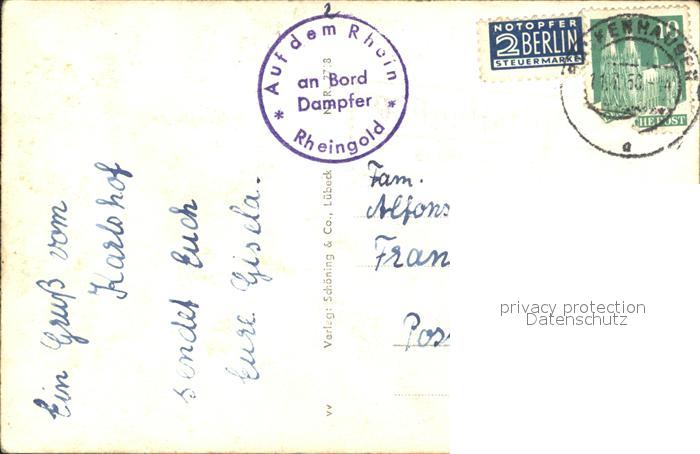 2
Auf dem Rhein
an Bord
Dampfer
* Rheingold *
NOTOPFER
2 BERLIN
STEUERMARKE
a
Ein Gruß vom
Karlshof
sendet Euch
Eure Gisela.
Verlag: Schöning & Co., Lübeck
vv
Fam.
Alfons
Fran
Pos
privacy protection
Datenschutz